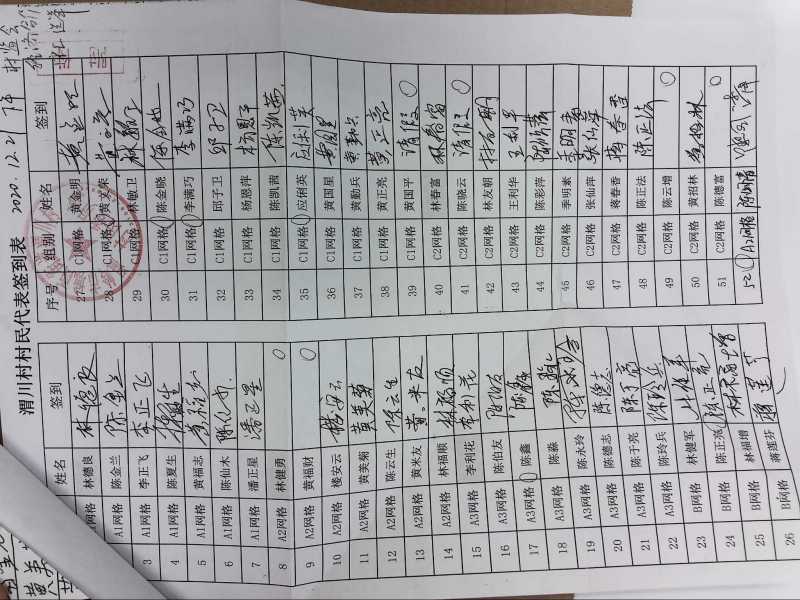 渭川村村民代表签到表 2020.12.21 下午
序号 姓名 签到
林德良 林德良
A1网格 陈金兰 陈金兰
3 A1网格 李正飞 李正飞
4 A1网格 陈夏生
5 A1网格 黄福志 黄福志
6 A1网格 陈仙木
7 A1网格 潘正星 潘正星
8 A2网格 林健勇 ○
9 A2网格 黄福财 ○
10 A2网格 楼安云 楼安云
11 A2网格 黄美菊 黄美菊
12 A2网格 陈云生 陈云生
13 A2网格 黄米友 黄米友
14 A2网格 林福顺 林福顺
15 A3网格 李利花 李利花
16 A3网格 陈伯友 陈伯友
17 A3网格 陈鑫 陈鑫
18 A3网格 陈淼
19 A3网格 陈永玲
20 A3网格 陈德志 陈德志
21 A3网格 陈于亮 陈于亮
22 A3网格 陈玲兵 陈玲兵
23 B网格 林健军 林健军
24 B网格 陈正亮 陈正亮
25 B网格 林福增
26 B网格 蒋莲芬
序号 组别 姓名 签到
27 C1网格 黄金明
28 C1网格 黄关荣
29 C1网格 林敏卫 林敏卫
30 C1网格 陈金晓
31 C1网格 李满巧 李满巧
32 C1网格 邱于卫 邱于卫
33 C1网格 杨恩萍
34 C1网格 陈凯茜 陈凯茜
35 C1网格 应俐英 应俐英
36 C1网格 黄国星 黄国星
37 C1网格 黄勤兵 黄勤兵
38 C1网格 黄正亮 黄正亮
39 C1网格 黄国平 请假 ○
40 C2网格 林春富 林春富
41 C2网格 陈晓云 请假 ○
42 C2网格 林友朝 林友朝
43 C2网格 王利华 王利华
44 C2网格 陈彩萍
45 C2网格 季明素 季明素
46 C2网格 张仙萍 张仙萍
47 C2网格 蒋春香 蒋春香
48 C2网格 陈正法 陈正法
49 C2网格 陈云增 ○
50 C2网格 黄招林 黄招林
51 C2网格 陈德富 ○
52 A2网格